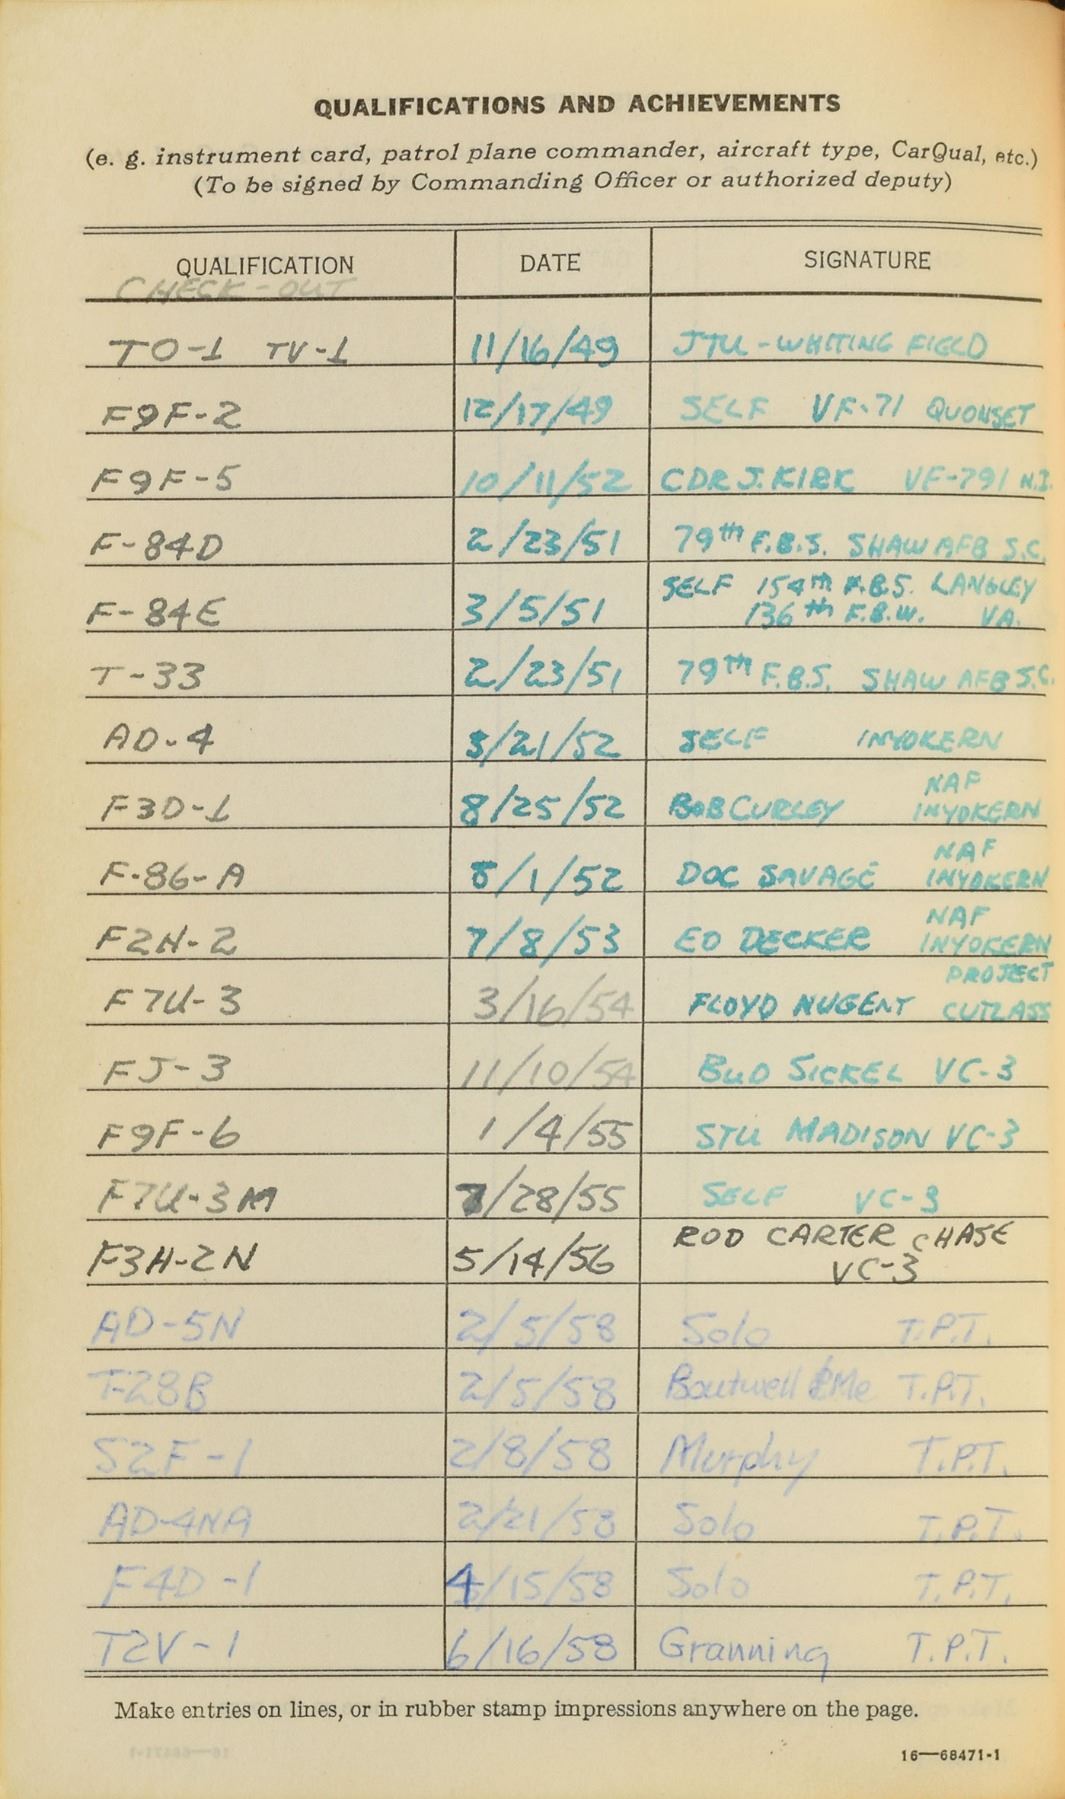 QUALIFICATIONS AND ACHIEVEMENTS
(e. g. instrument card, patrol plane commander, aircraft type, CarQual, etc.)
(To be signed by Commanding Officer or authorized deputy)
QUALIFICATION DATE SIGNATURE
CHECK-OUT
TO-1 TV-1 11/16/49 JTU-WHITING FIELD
F9F-2 12/17/49 SELF VF-71 QUONSET
F9F-5 10/11/52 CDR J. KIRK VF-791 N.I.
F-84D 2/23/51 79th F.B.S. SHAW AFB S.C.
F-84E 3/5/51 SELF 154th F.B.S. LANGLEY
136th F.B.W. VA.
T-33 2/23/51 79th F.B.S. SHAW AFB S.C.
AD-4 /21/52 SELF INYOKERN
F3D-1 8/25/52 BOB CURLEY NAF
INYOKERN
F-86-A 8/1/52 DOC SAVAGE NAF
INYOKERN
F2H-2 7/8/53 ED DECKER NAF
INYOKERN
F7U-3 3/16/54 FLOYD NUGENT PROJECT
CUTLASS
FJ-3 11/10/54 BUD SICKEL VC-3
F9F-6 1/4/55 STU MADISON VC-3
F7U-3M 7/28/55 SELF VC-3
F3H-2N 5/14/56 ROD CARTER CHASE
VC-3
AD-5N 2/5/58 Solo T.P.T.
T-28B 2/5/58 Boutwell & Me T.P.T.
S2F-1 2/8/58 Murphy T.P.T.
AD-4NA 2/21/58 Solo T.P.T.
F4D-1 4/15/58 Solo T.P.T.
T2V-1 6/16/58 Granning T.P.T.
Make entries on lines, or in rubber stamp impressions anywhere on the page.
16—68471-1